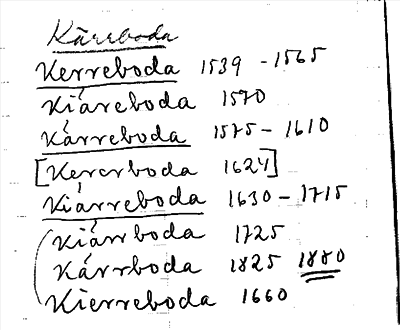 Kärreboda
Kerreboda 1539 - 1565
Kiáreboda 1570
Kárreboda 1575 - 1610
[Kercrboda 1624]
Kiárreboda 1630 - 1715
Kiárrboda 1725
Kárrboda 1825 1880
Kierreboda 1660